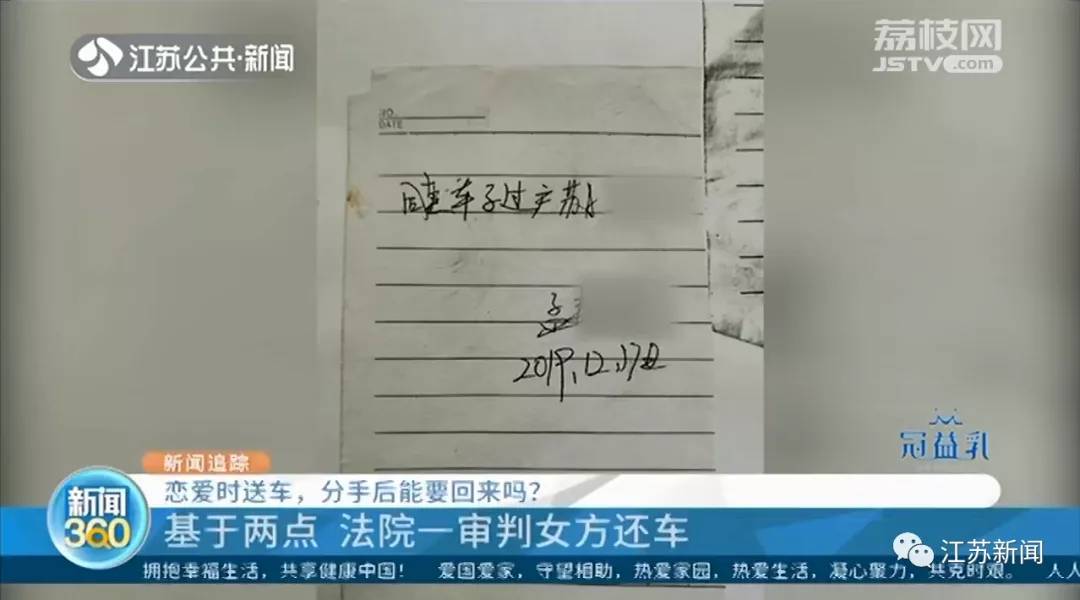 江苏公共·新闻
荔枝网
JSTV.com
NO.
DATE
同意车子过户苏
孟
2019.12.17日
冠益乳
新闻追踪
恋爱时送车，分手后能要回来吗？
新闻
360
基于两点 法院一审判女方还车
江苏新闻
拥抱幸福生活，共享健康中国！ 爱国爱家，守望相助，热爱家园，热爱生活，凝心聚力，共克时艰。 人人